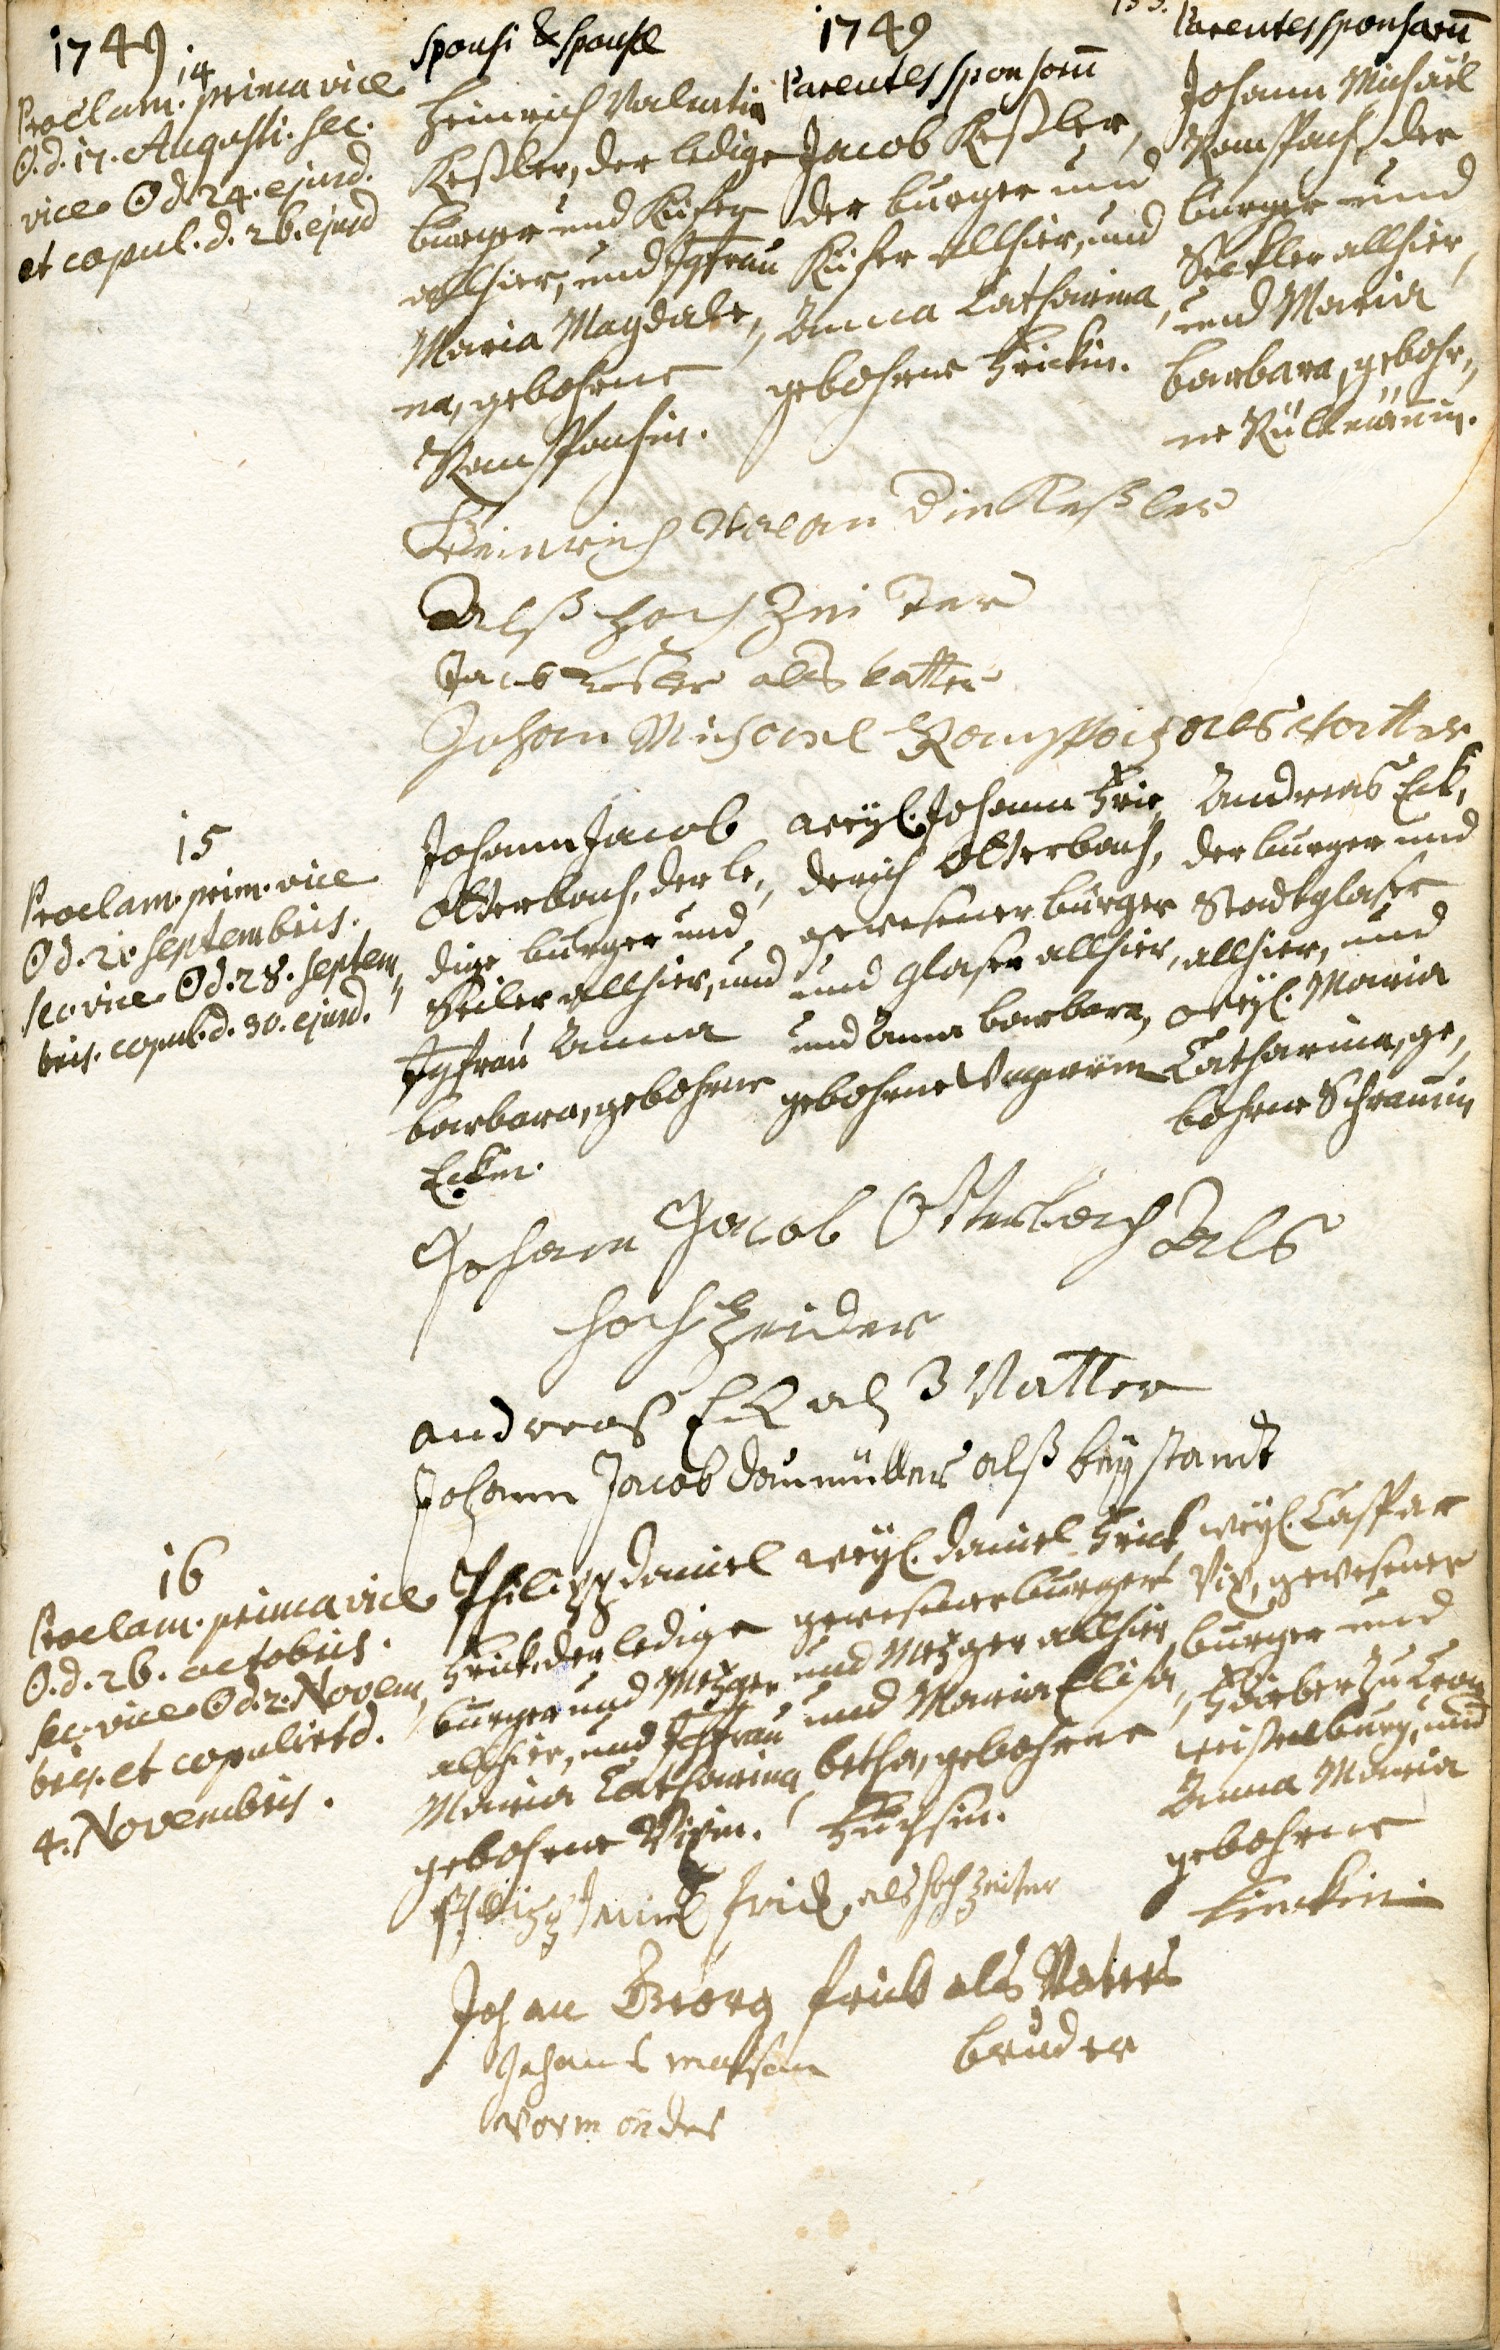 1749
14
Proclam. prima vice
O. d. 17. Augusti. sec.
vice O d. 24. ejusd.
et copul. d. 26. ejusd
sponsi & sponsæ
Heinrich Valentin
Keßler, der ledige
burger und Küfer
allhier, und Jgfrau
Maria Magdale,,
na, gebohrne
Ramspachin.
1749
Parentes sponsorū
Jacob Keßler,
der burger und
Küfer allhier, und
Anna Catharina,
gebohrne Frickin.
Parentes sponsarū
Johann Michäel
Ramspach, der
burger und
Seckler allhier,
und Maria
barbara, gebohr,,
ne
Heinrich Keßler
Alß hoch Zei ter
Jacob Kesler als vatter
Johan Michael Ramspach als vatter
15
Proclam. prim. vice
O d. 21. Septembris.
sec. vice O d. 28. Septem,,
bris. copul. d. 30. ejusd.
Johann Jacob
Otterbach, der le,,
dige burger und
Seiler allhier, und
Jgfrau Anna
barbara, gebohrne
Eckin.
weyl. Johann Frie,,
derich Otterbach,
gewesener burger
und Glaser allhier,
und Anna barbara,
gebohrne
Andreas Eck,
der burger und
Stadtglaser
allhier, und
weyl. Maria
Catharina, ge,,
bohrne Schrammin
Johann Jacob Otterbach Als
hoch Zeider
andreas Eck alß Vatter
Johann Jacob Daumüller alß beystandt
16
Proclam. prima vice
O. d. 26. octobris.
sec. vice O d. 2. Novem,,
bris. et copulirt d.
4. Novembris.
Philipp Daniel
Frick, der ledige
burger und Metzger
allhier, und Jgfrau
Maria Catharina,
gebohrne Vixin.
weyl. Daniel Frick
gewesener burger
und Metzger allhier
und Maria Elisa,,
betha, gebohrne
Fuchsin.
weyl. Caspar
Vix, gewesener
burger und
Färber zu
und
Anna Maria
gebohrne
Finckin.
Philipp Daniel Frick, als hochzeiter
Johan Georg frick als Vatters
bruder
Johans
Vormönder